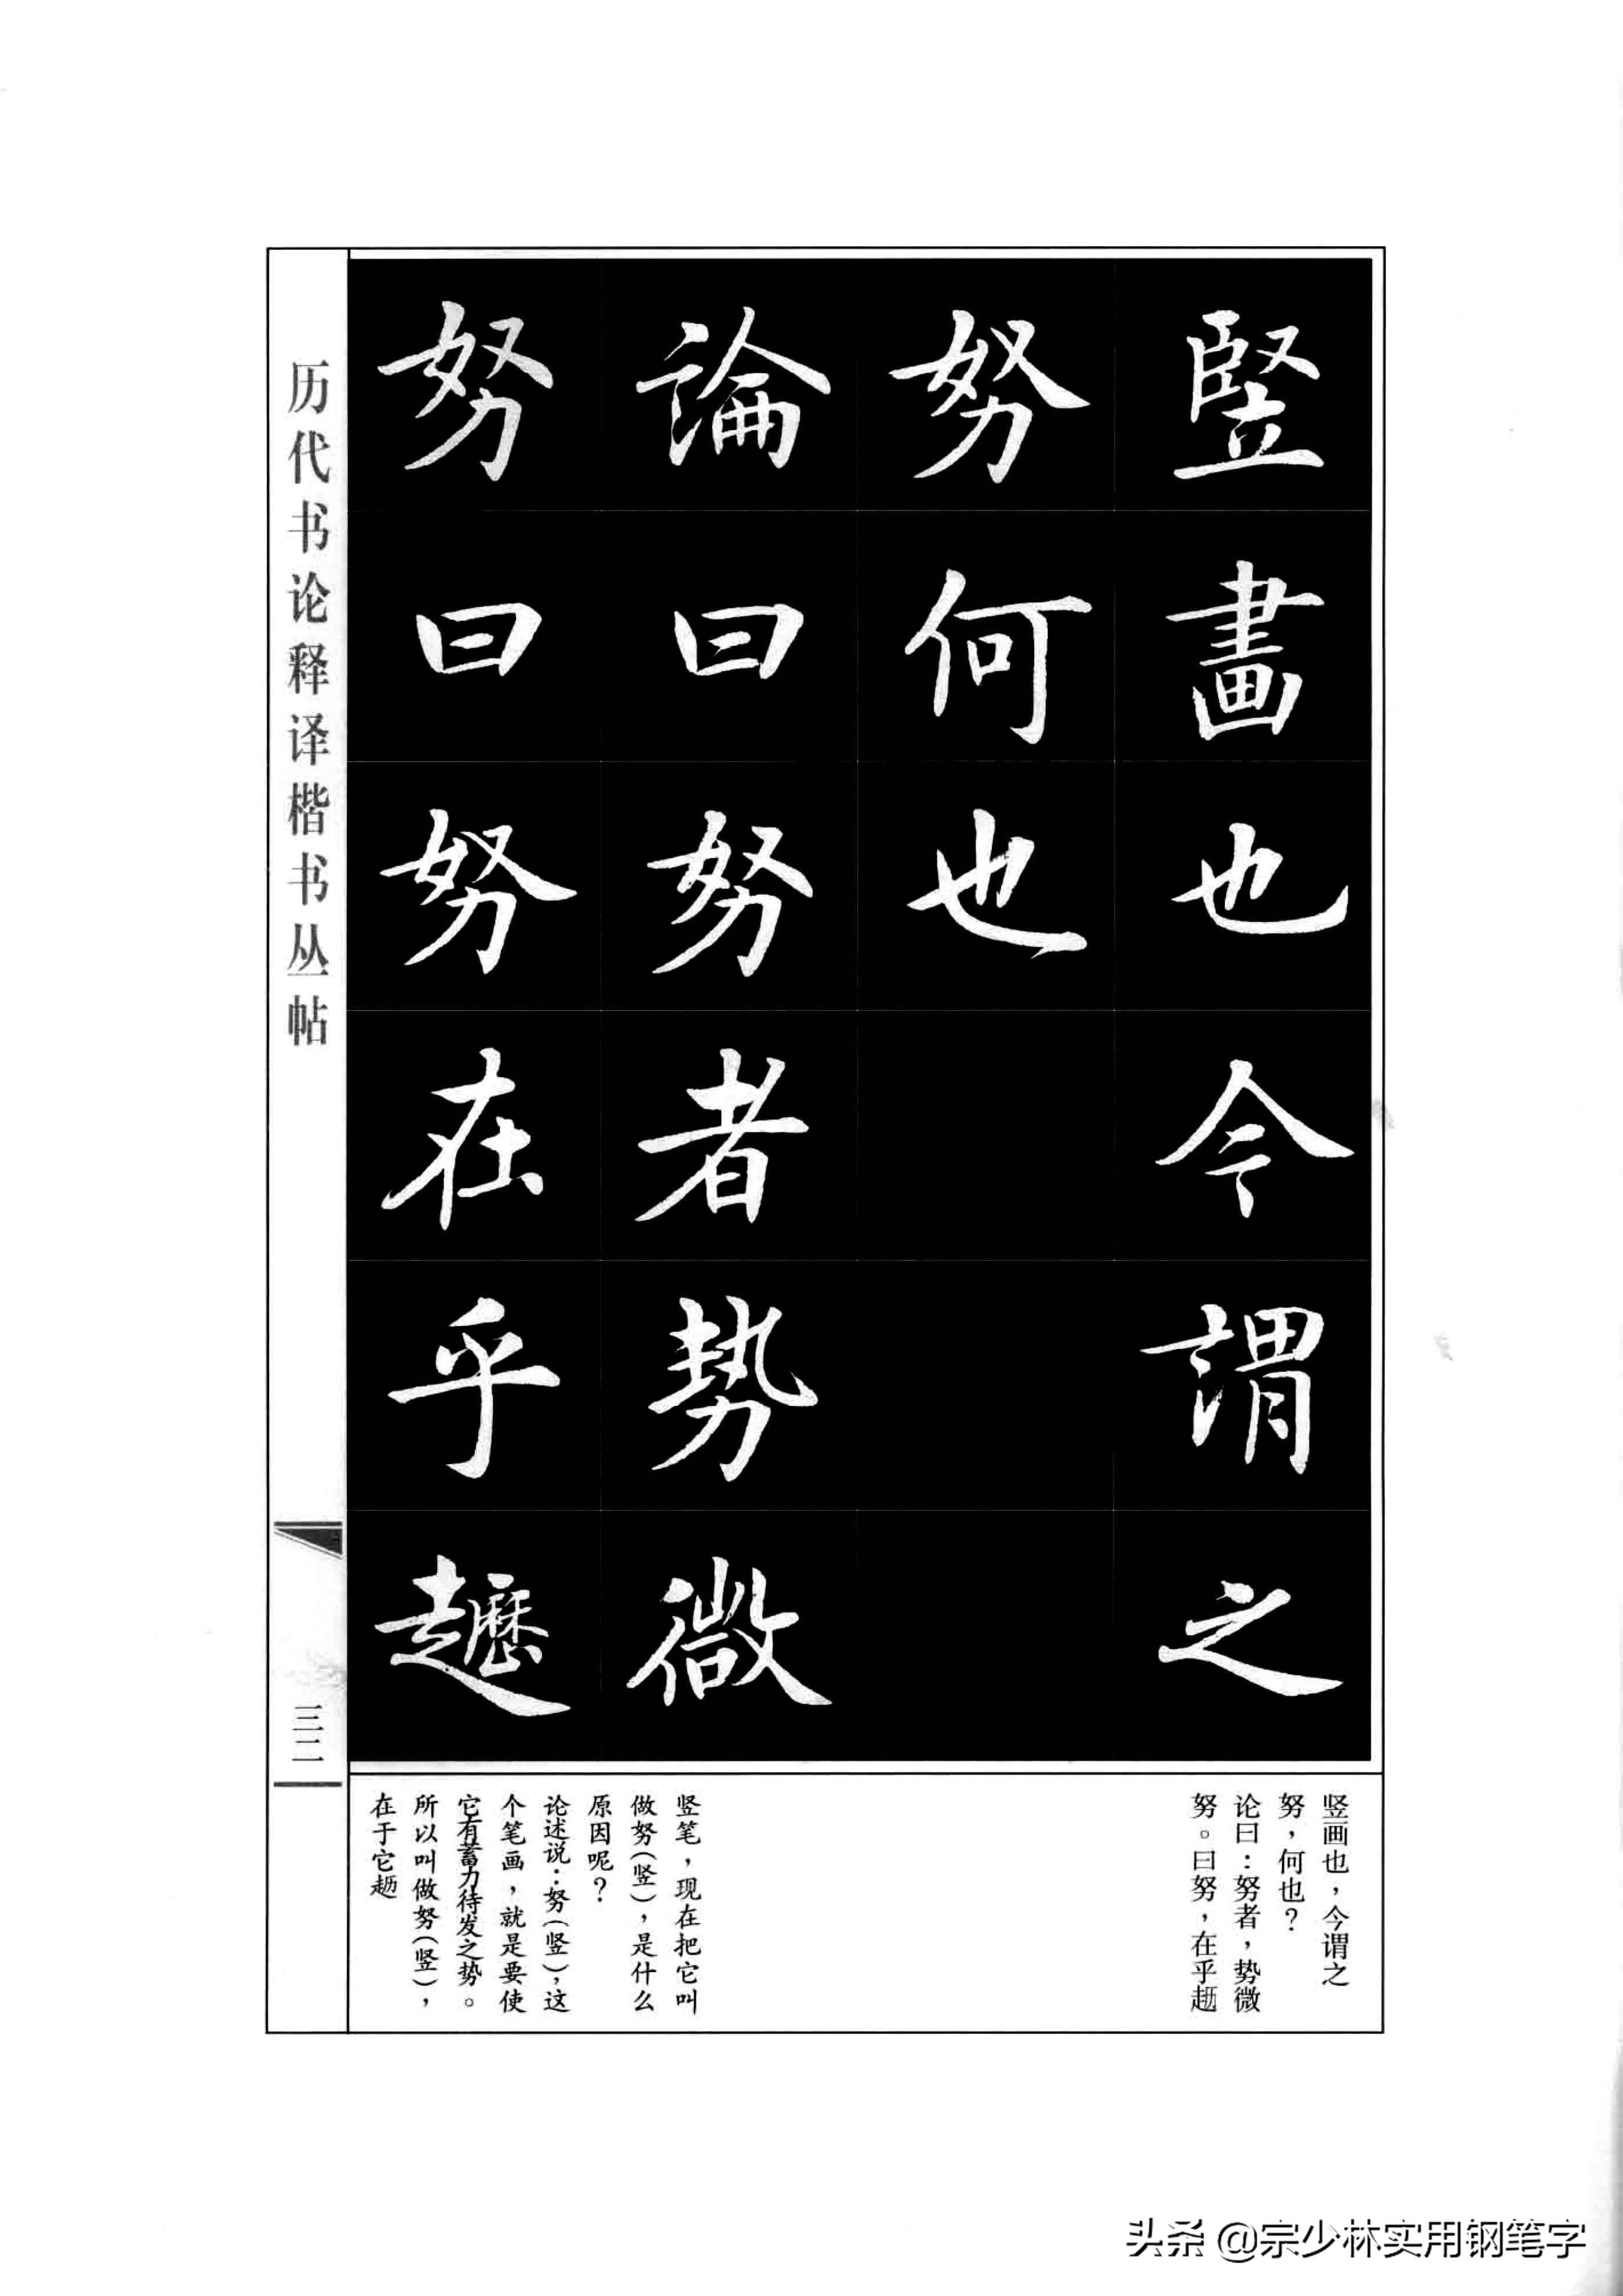 豎畫也今謂之
努何也
論曰努者勢微
努曰努在乎趰
竖画也，今谓之
努，何也？
论曰：努者，势微
努。曰努，在乎
竖笔，现在把它叫
做努（竖），是什么
原因呢？
论述说：努（竖），这
个笔画，就是要使
它有蓄力待发之势。
所以叫做努（竖），
在于它
历代书论释译楷书丛帖
三二
头条 @宗少林实用钢笔字